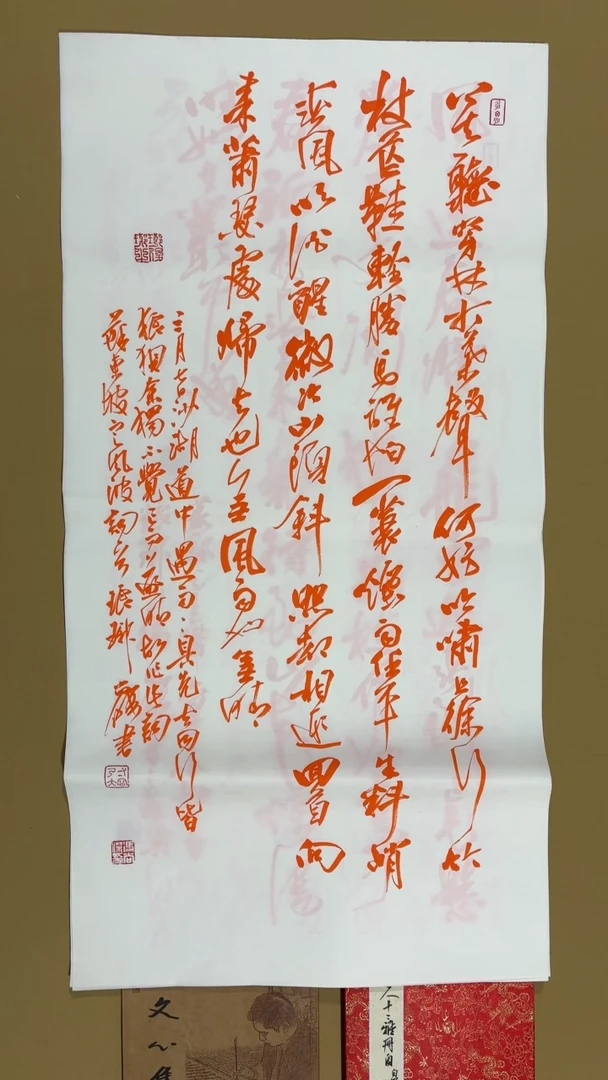 莫聽穿林打葉聲何妨吟嘯且徐行竹
杖芒鞋輕勝馬誰怕一蓑煙雨任平生料峭
春風吹酒醒微冷山頭斜照却相迎回首向
来蕭瑟處歸去也無風雨也無晴
三月七日沙湖道中遇雨雨具先去同行皆
狼狽余獨不覺已而遂晴故作此詞
蘇東坡定風波詞 琅琊 書
文心